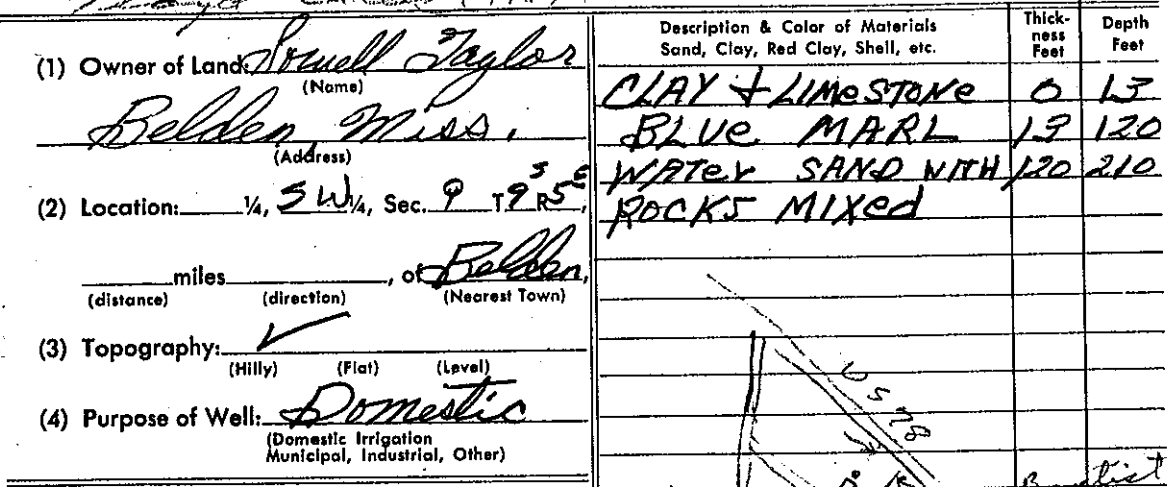 (1) Owner of Land: Taylor
(Name)
Belden Miss.
(Address)
(2) Location: ¼, SW ¼, Sec. 9 T 9 S R 5 E,
miles , of Belden,
(distance) (direction) (Nearest Town)
(3) Topography: ✓
(Hilly) (Flat) (Level)
(4) Purpose of Well: Domestic
(Domestic Irrigation
Municipal, Industrial, Other)
Description & Color of Materials
Sand, Clay, Red Clay, Shell, etc.
Thick-
ness
Feet
Depth
Feet
CLAY + LIMESTONE 0 13
BLUE MARL 13 120
WATER SAND WITH 120 210
ROCKS MIXED
U S